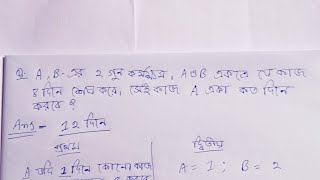 Q. A, B-এর ২ গুন কর্মক্ষম, A ও B একত্রে যে কাজ
৪ দিনে শেষ করে, সেই কাজ A একা কত দিনে
করবে ?
Ans - 12 দিন
প্রথম দ্বিতীয়
A যদি 1 দিনে কোনো কাজ A = 1 ; B = 2
করবে